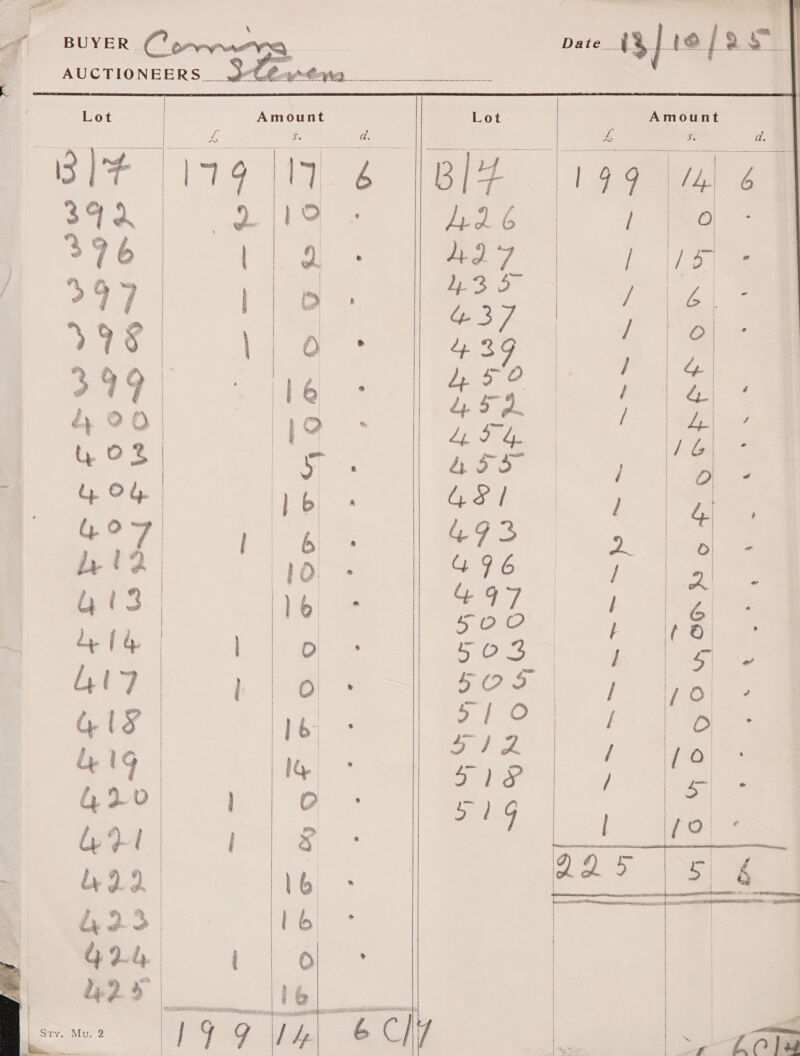 BUYER Date 13/10/25
AUCTIONEERS Stevens
Lot Amount
£ s. d.
B/F 179 17 6
392 2 10 -
396 1 2 -
397 1 0 -
398 1 0 -
399 16 -
400 10 -
403 5 -
404 16 -
407 1 6 -
412 10 -
413 16 -
414 1 0 -
417 1 0 -
418 16 -
419 14 -
420 1 0 -
421 1 8 -
422 16 -
423 16 -
424 1 0 -
425 16
199 14 6 C/F
Sty. Mu. 2
Lot Amount
£ s. d.
B/F 199 14 6
426 1 0 -
427 1 15 -
435 1 6 -
437 1 0 -
439 1 4
450 1 4 -
452 1 4 -
454 16 -
455 1 0 -
481 1 4 -
493 2 0 -
496 1 2 -
497 1 6 -
500 1 10 -
503 1 5 -
505 1 10 -
510 1 0 -
512 1 10 -
518 1 5 -
519 1 10 -
225 5 6